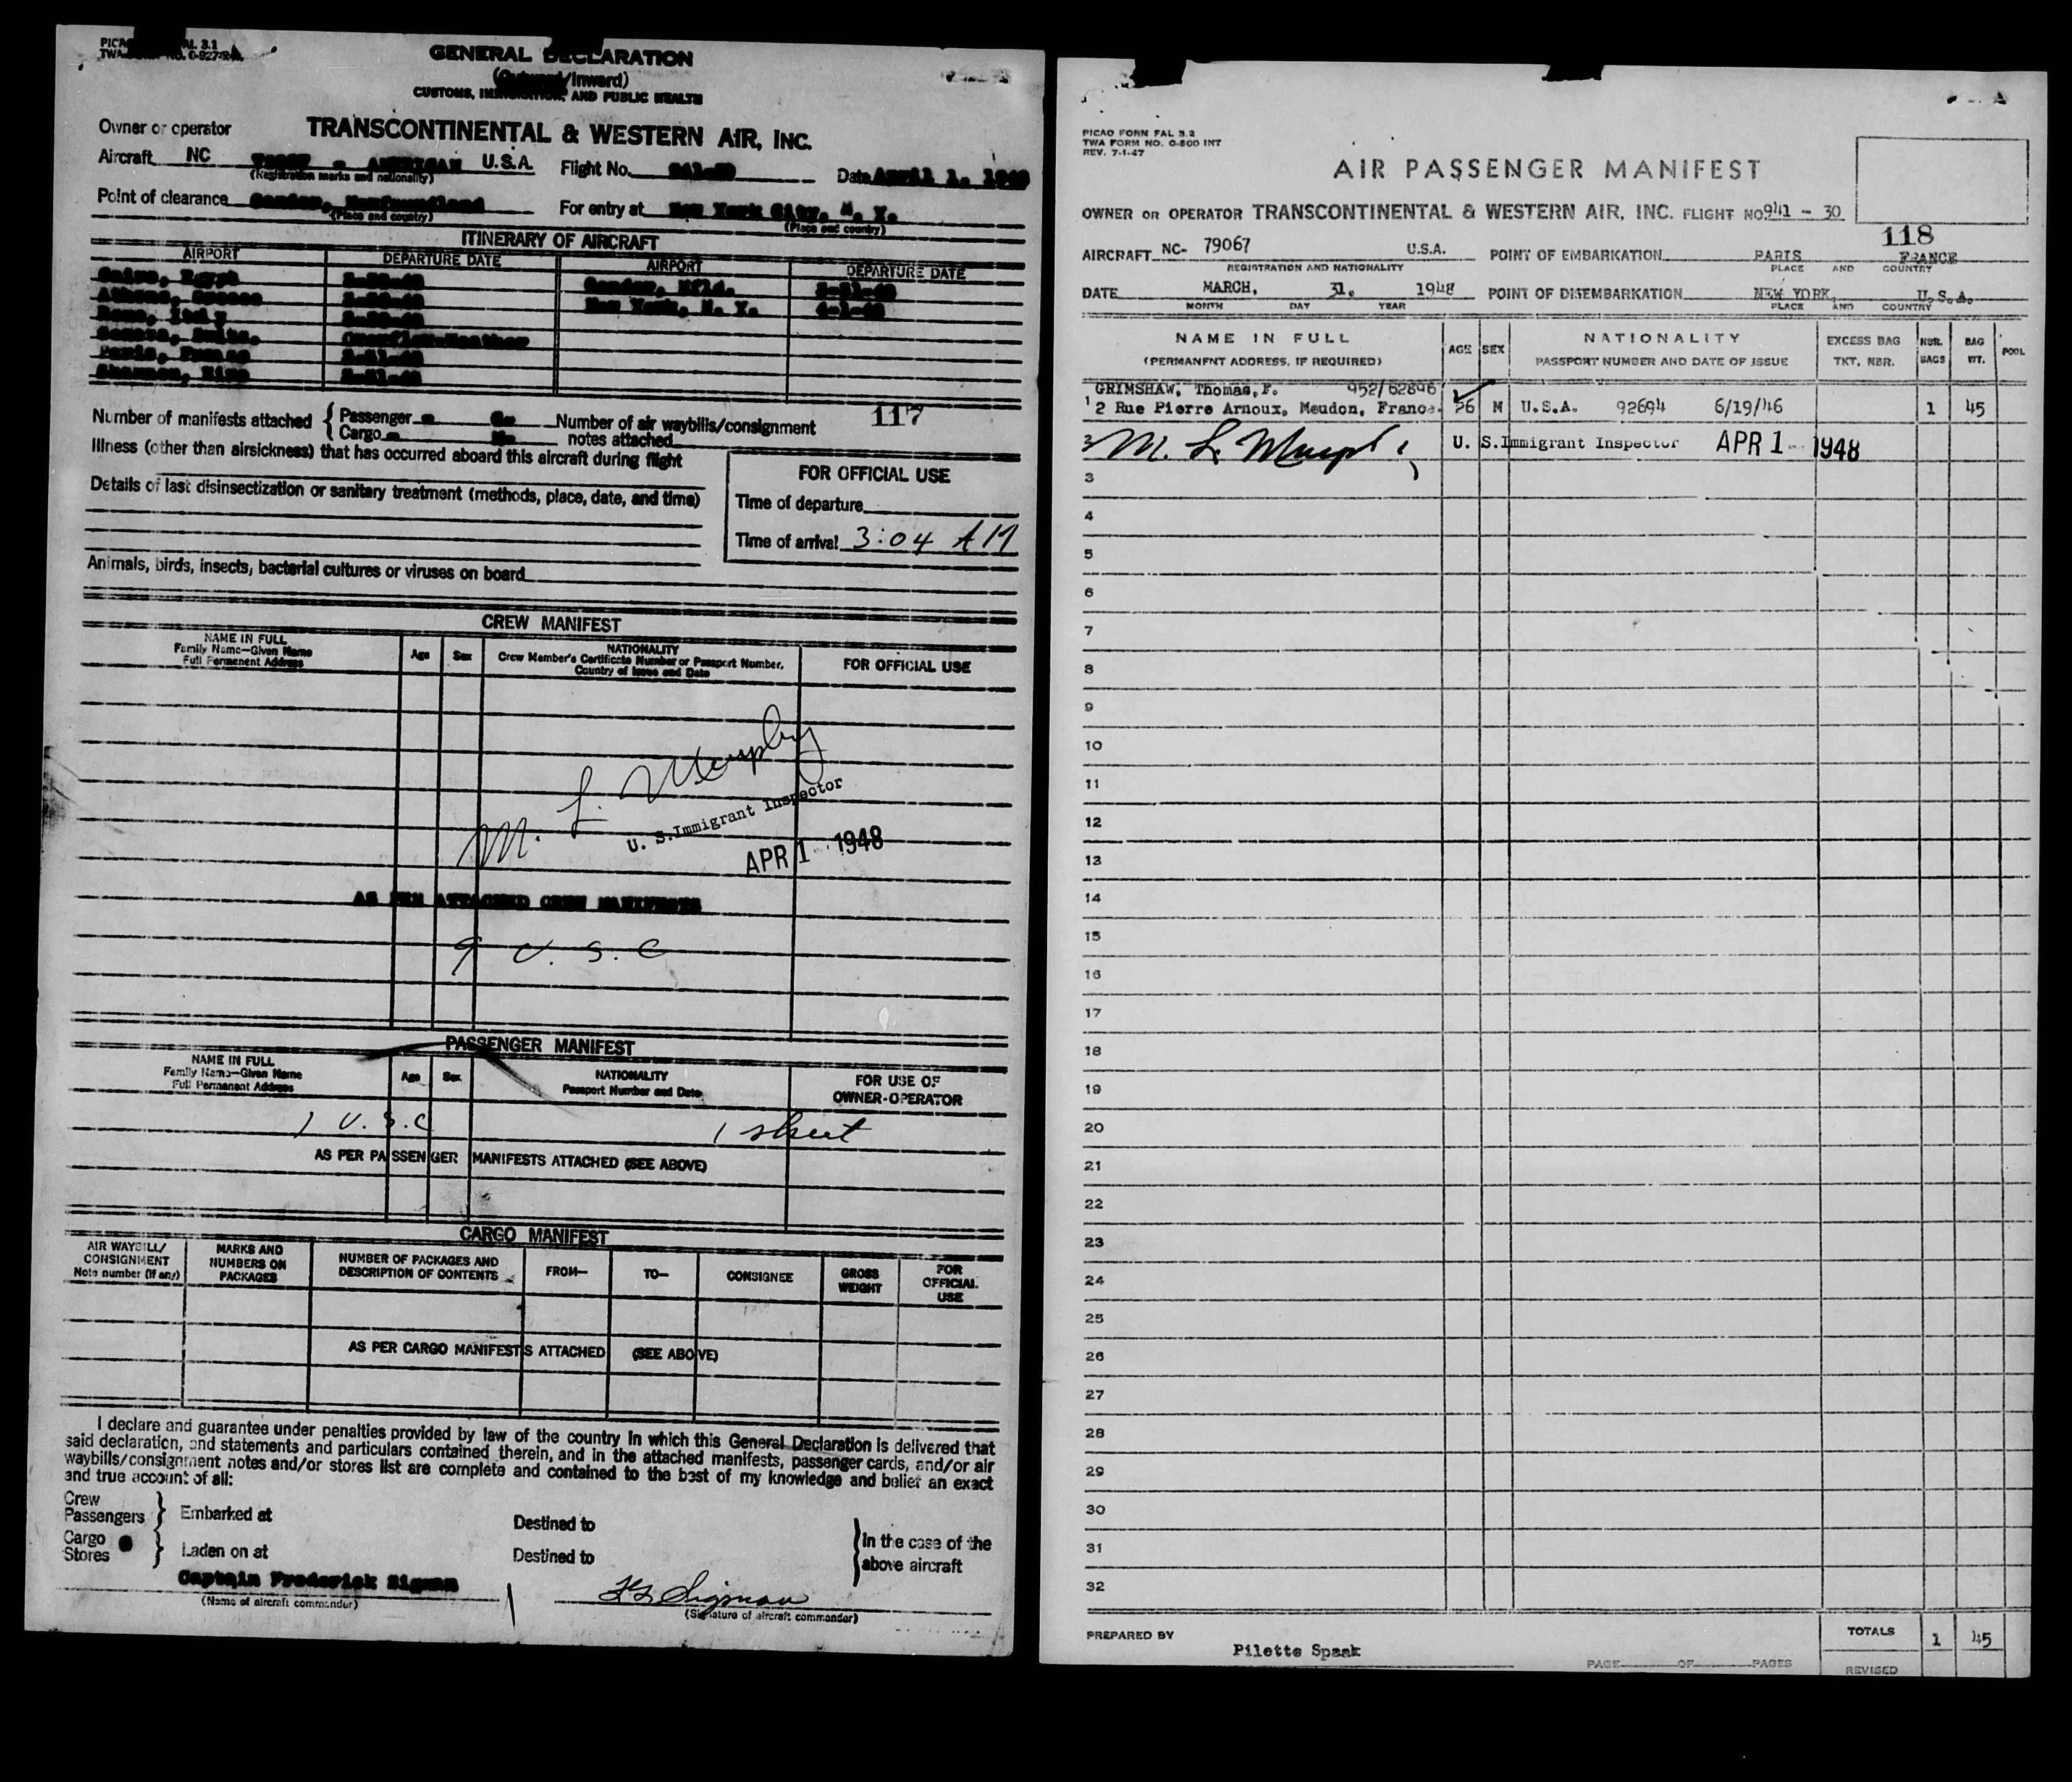 GENERAL DECLARATION
(Outward/Inward)
CUSTOMS, IMMIGRATION, AND PUBLIC HEALTH
Owner or operator TRANSCONTINENTAL & WESTERN AIR, INC.
Aircraft NC AMERICAN U.S.A. Flight No. Date April 1, 1948
(Registration marks and nationality)
Point of clearance Gander, Newfoundland For entry at New York City, N. Y.
(Place and country) (Place and country)
ITINERARY OF AIRCRAFT
AIRPORT DEPARTURE DATE AIRPORT DEPARTURE DATE
Cairo, Egypt Gander, Nfld.
Athens, Greece New York, N. Y.
Rome, Italy
Geneva, Switz.
Paris, France
Shannon, Eire
117
Number of manifests attached { Passenger Number of air waybills/consignment
Cargo notes attached
Illness (other than airsickness) that has occurred aboard this aircraft during flight
FOR OFFICIAL USE
Details of last disinsectization or sanitary treatment (methods, place, date, and time)
Time of departure
Time of arrival 3:04 AM
Animals, birds, insects, bacterial cultures or viruses on board
CREW MANIFEST
NAME IN FULL
Family Name—Given Name
Full Permanent Address
Age Sex
NATIONALITY
Crew Member's Certificate Number or Passport Number,
Country of Issue and Date
FOR OFFICIAL USE
M. L. Murphy
U. S. Immigrant Inspector
APR 1 1948
AS PER ATTACHED CREW MANIFESTS
9 U. S. C
PASSENGER MANIFEST
NAME IN FULL
Family Name—Given Name
Full Permanent Address
Age Sex
NATIONALITY
Passport Number and Date
FOR USE OF
OWNER-OPERATOR
1 U. S. C 1 sheet
AS PER PASSENGER MANIFESTS ATTACHED (SEE ABOVE)
CARGO MANIFEST
AIR WAYBILL/
CONSIGNMENT
Note number (if any)
MARKS AND
NUMBERS ON
PACKAGES
NUMBER OF PACKAGES AND
DESCRIPTION OF CONTENTS
FROM— TO— CONSIGNEE
GROSS
WEIGHT
FOR
OFFICIAL
USE
AS PER CARGO MANIFESTS ATTACHED (SEE ABOVE)
I declare and guarantee under penalties provided by law of the country in which this General Declaration is delivered that
said declaration, and statements and particulars contained therein, and in the attached manifests, passenger cards, and/or air
waybills/consignment notes and/or stores list are complete and contained to the best of my knowledge and belief an exact
and true account of all:
Crew
Passengers } Embarked at Destined to
Cargo
Stores } Laden on at Destined to
In the case of the
above aircraft
Captain Frederick Sigman
(Name of aircraft commander) (Signature of aircraft commander)
PICAO FORM FAL 3.2
TWA FORM NO. O-800 INT
REV. 7-1-47
AIR PASSENGER MANIFEST
OWNER OR OPERATOR TRANSCONTINENTAL & WESTERN AIR, INC. FLIGHT NO 941 - 30
118
AIRCRAFT NC- 79067 U.S.A. POINT OF EMBARKATION PARIS FRANCE
REGISTRATION AND NATIONALITY PLACE AND COUNTRY
DATE MARCH, 31, 1948 POINT OF DISEMBARKATION NEW YORK, U.S.A.
MONTH DAY YEAR PLACE AND COUNTRY
NAME IN FULL
(PERMANENT ADDRESS, IF REQUIRED)
AGE SEX
NATIONALITY
PASSPORT NUMBER AND DATE OF ISSUE
EXCESS BAG
TKT. NBR.
NBR.
BAGS
BAG
WT.
POOL
GRIMSHAW, Thomas, F. 952/62896
1 2 Rue Pierre Arnoux, Meudon, France. 56 M U.S.A. 92694 6/19/46 1 45
M. L. Murphy U. S. Immigrant Inspector APR 1 1948
3
4
5
6
7
8
9
10
11
12
13
14
15
16
17
18
19
20
21
22
23
24
25
26
27
28
29
30
31
32
PREPARED BY Pilette Spaak
TOTALS 1 45
PAGE OF PAGES
REVISED